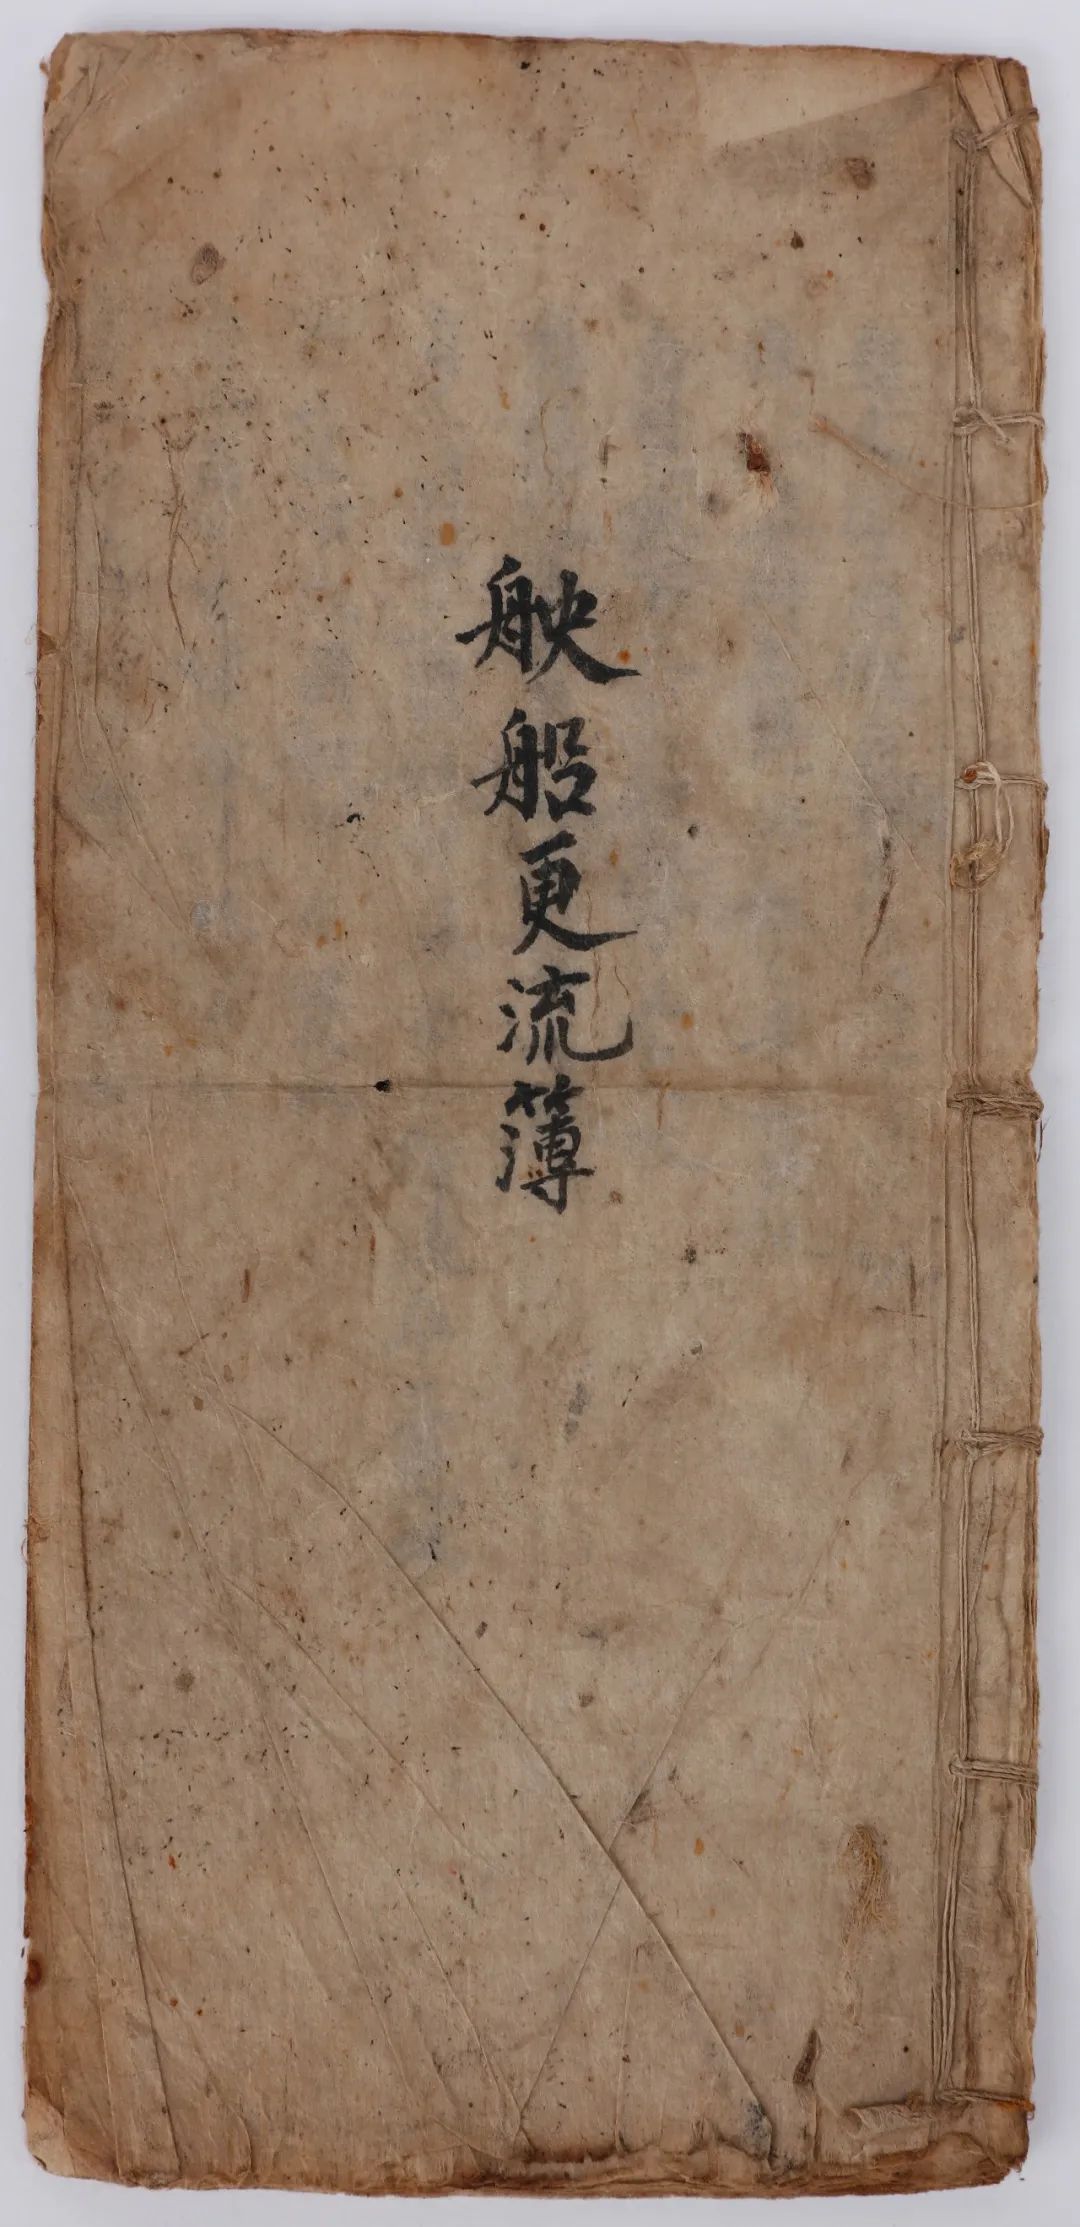 䑩船更流簿